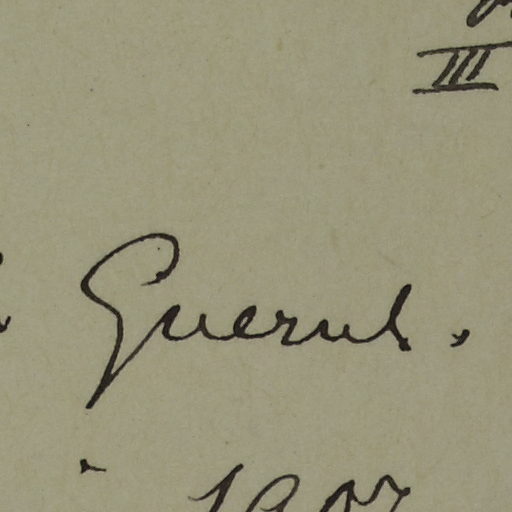 III
Guerul.
1907